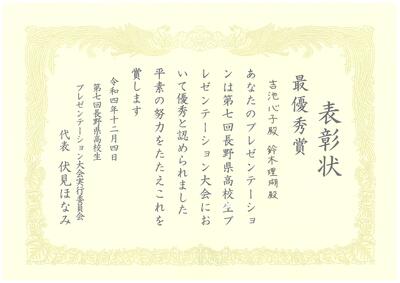 表彰状
最優秀賞
吉池心子殿 鈴木理瑚殿
あなたのプレゼンテーショ
ンは第七回長野県高校生プ
レゼンテーション大会にお
いて優秀と認められました
平素の努力をたたえこれを
賞します
令和四年十二月四日
第七回長野県高校生
プレゼンテーション大会実行委員会
代表 伏見ほなみ